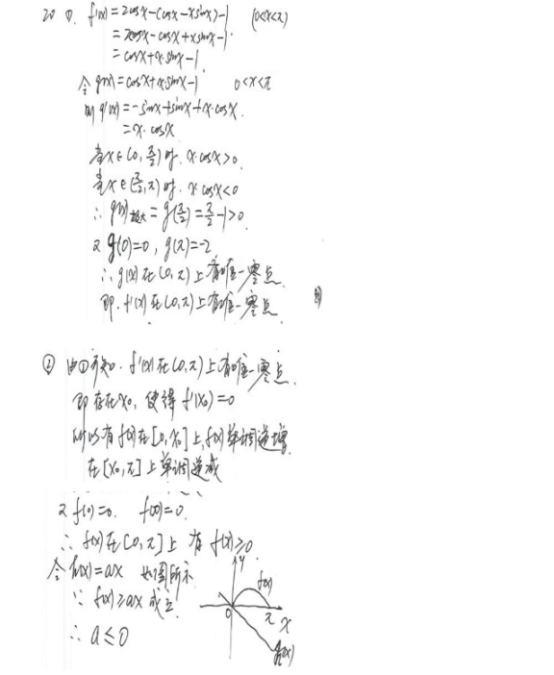 20 ①. f'(x)=2cosx-(cosx-xsinx)-1 (0<x<π)
=2cosx-cosx+xsinx-1
=cosx+x·sinx-1
令 g(x)=cosx+x·sinx-1 0<x<π
则 g'(x)=-sinx+sinx+x·cosx.
=x·cosx
当x∈(0,π/2)时.x·cosx>0.
当x∈(π/2,π)时.x cosx<0
∴ g(x)极大=g(π/2)=π/2-1>0
又 g(0)=0, g(π)=-2
∴ g(x)在(0,π)上有唯一零点.
即.f'(x)在(0,π)上有唯一零点.
② 由①可知.f'(x)在(0,π)上有唯一零点.
即存在x₀,使得f'(x₀)=0
所以有f(x)在[0,x₀]上,f(x)单调递增.
在[x₀,π]上单调递减
又f(0)=0. f(π)=0.
∴ f(x)在[0,π]上有f(x)≥0
令h(x)=ax 如图所示
∵ f(x)≥ax成立
∴ a≤0
y
f(x)
0 π x